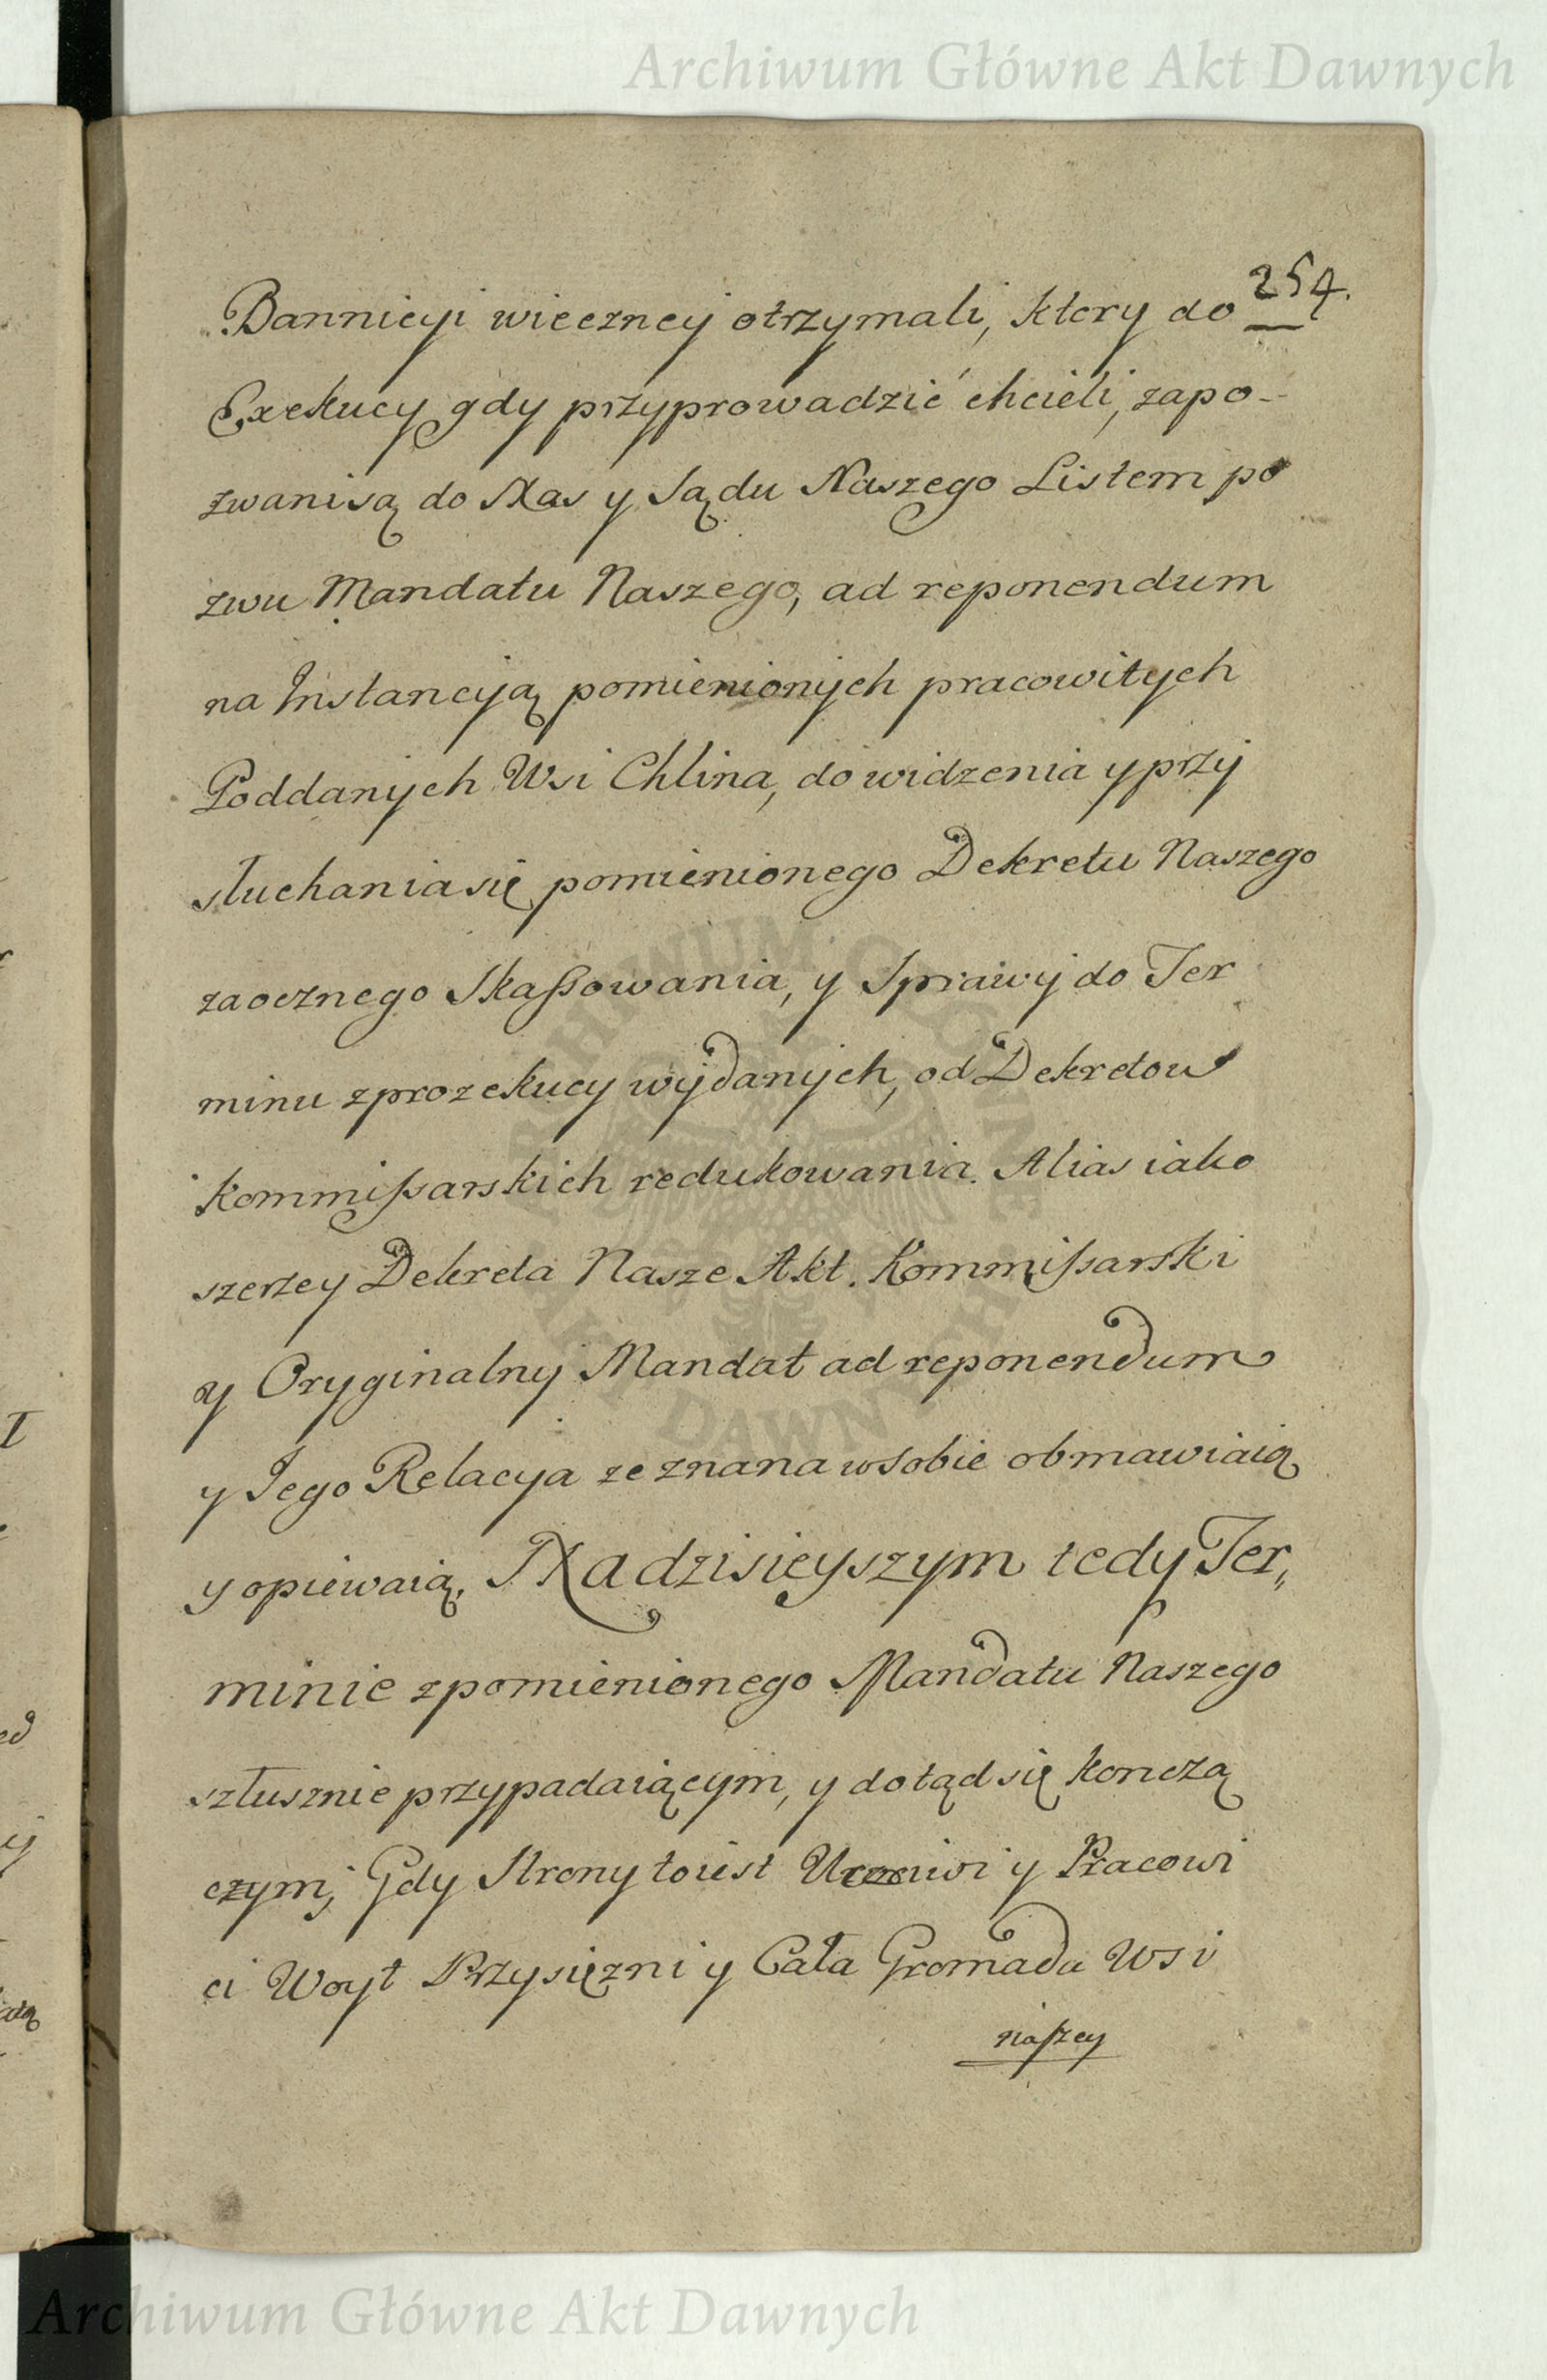 Archiwum Główne Akt Dawnych
254.
Bannicyi wieczney otrzymali, ktory do
Exekucy gdy przyprowadzić chcieli, zapo-
zwani są do Nas y Sądu Naszego Listem po
zwu Mandatu Naszego, ad reponendum
na Instancyją pomienionych pracowitych
Poddanych Wsi Chlina, do widzenia y przy
słuchania się pomienionego Dekretu Naszego
zaocznego Skassowania, y Sprawy do Ter
minu z prozekucy wydanych, od Dekretow
Kommissarskich redukowania. Alias iako
szerzey Dekreta Nasze Akt. Kommissarski
y Oryginalny Mandat ad reponendum
y Jego Relacya zeznana w sobie obmawiaią
y opiewaią. Na dzisieyszym tedy Ter,,
minie z pomienionego Mandatu Naszego
szłusznie przypadaiącym, y dotąd się konczą
czym, Gdy Strony to iest y Pracowi
ci Woyt Przysięzni y Cała Gromada Wsi
naszey
ARCHIWUM GŁÓWNE AKT DAWNYCH
Archiwum Główne Akt Dawnych